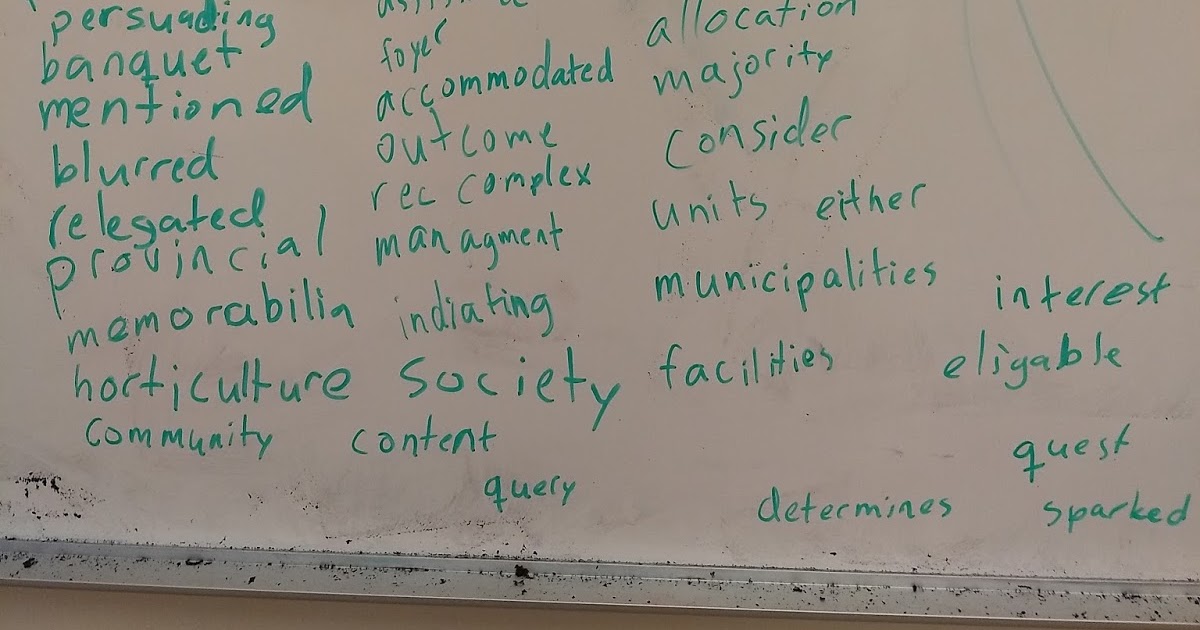 persuading
banquet
mentioned
blurred
relegated
provincial
memorabilia
horticulture society
community content
query
foyer
accommodated
outcome
rec complex
managment
indiating
allocation
majority
consider
units either
municipalities
facilities
interest
eligable
quest
determines sparked